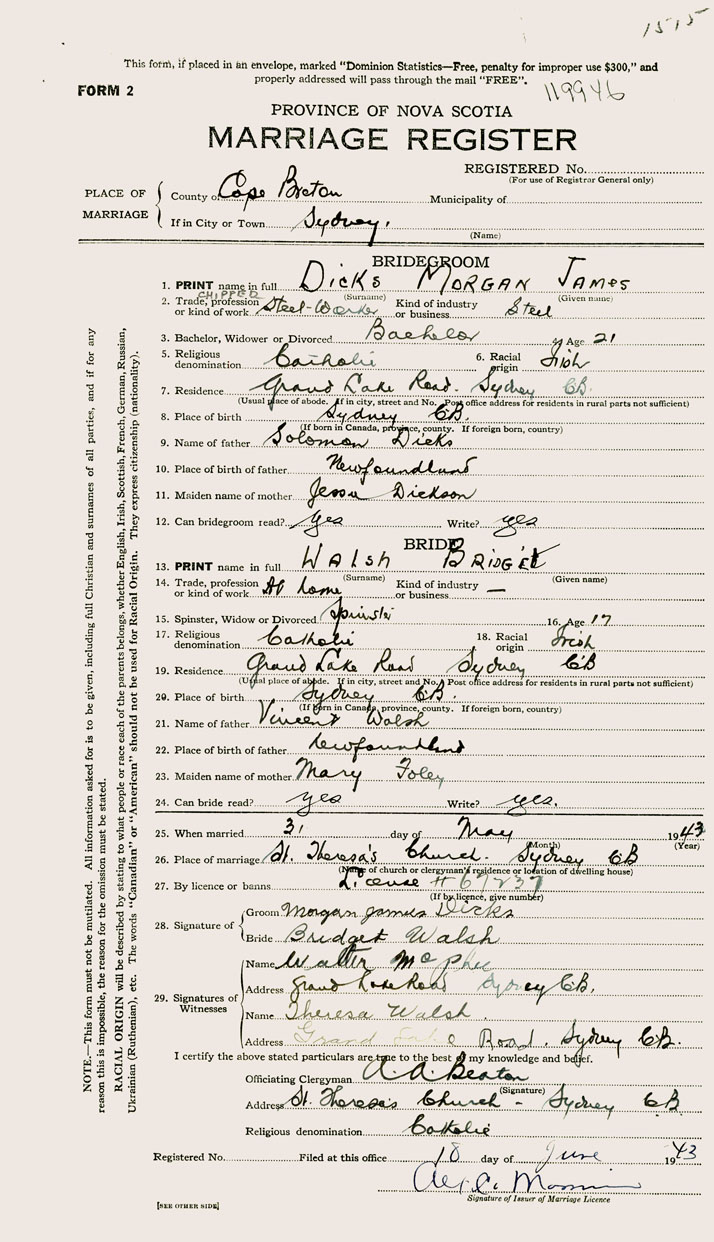 1515
This form, if placed in an envelope, marked “Dominion Statistics—Free, penalty for improper use $300,” and
properly addressed will pass through the mail “FREE”.
FORM 2
119946
PROVINCE OF NOVA SCOTIA
MARRIAGE REGISTER
REGISTERED No.
(For use of Registrar General only)
PLACE OF MARRIAGE
County of Cape Breton Municipality of
If in City or Town Sydney.
(Name)
BRIDEGROOM
1. PRINT name in full DICKS MORGAN JAMES
(Surname) (Given name)
CHIPPED
2. Trade, profession or kind of work Steel-Worker Kind of industry or business Steel
3. Bachelor, Widower or Divorced Bachelor 4. Age 21
5. Religious denomination Catholic 6. Racial origin Irish
7. Residence Grand Lake Road. Sydney CB.
(Usual place of abode. If in city, street and No. Post office address for residents in rural parts not sufficient)
8. Place of birth Sydney CB.
(If born in Canada, province, county. If foreign born, country)
9. Name of father Solomon Dicks
10. Place of birth of father Newfoundland
11. Maiden name of mother Jessie Dickson
12. Can bridegroom read? yes Write? yes
BRIDE
13. PRINT name in full WALSH BRIDGET
(Surname) (Given name)
14. Trade, profession or kind of work At home Kind of industry or business —
15. Spinster, Widow or Divorced Spinster 16. Age 17
17. Religious denomination Catholic 18. Racial origin Irish
19. Residence Grand Lake Road Sydney CB
(Usual place of abode. If in city, street and No. Post office address for residents in rural parts not sufficient)
20. Place of birth Sydney CB.
(If born in Canada, province, county. If foreign born, country)
21. Name of father Vincent Walsh
22. Place of birth of father Newfoundland
23. Maiden name of mother Mary Foley
24. Can bride read? yes Write? yes.
25. When married 31 day of May 1943
(Month) (Year)
26. Place of marriage St. Theresa's Church. Sydney CB
(Name of church or clergyman's residence or location of dwelling house)
27. By licence or banns License # 67237
(If by licence, give number)
28. Signature of
Groom Morgan James Dicks
Bride Bridget Walsh
29. Signatures of Witnesses
Name Walter McPhee
Address Grand Lake Road Sydney CB.
Name Theresa Walsh.
Address Grand Lake Road. Sydney CB.
I certify the above stated particulars are true to the best of my knowledge and belief.
Officiating Clergyman A. A. Beaton
(Signature)
Address St. Theresa's Church - Sydney CB
Religious denomination Catholic
Registered No. Filed at this office 18 day of June 1943
Signature of Issuer of Marriage Licence
[SEE OTHER SIDE]
NOTE.—This form must not be mutilated. All information asked for is to be given, including full Christian and surnames of all parties, and if for any
reason this is impossible, the reason for the omission must be stated.
RACIAL ORIGIN will be described by stating to what people or race each of the parents belongs, whether English, Irish, Scottish, French, German, Russian,
Ukrainian (Ruthenian), etc. The words “Canadian” or “American” should not be used for Racial Origin. They express citizenship (nationality).